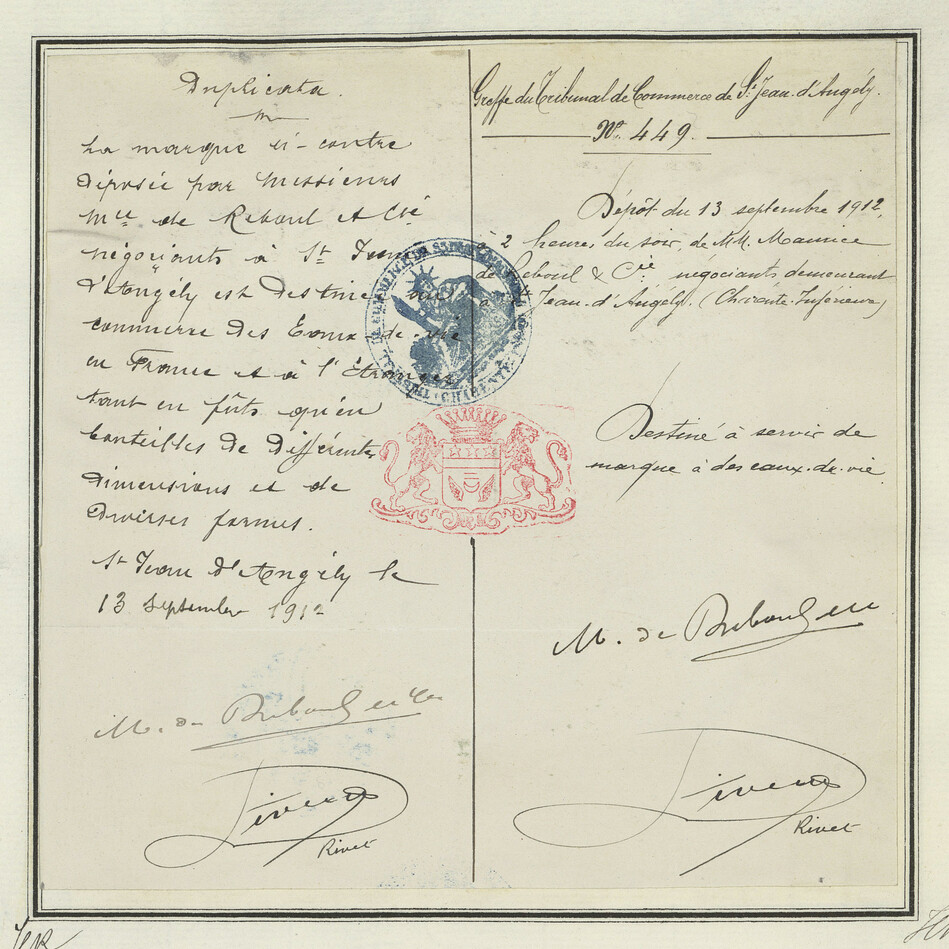 Duplicata.
La marque ci-contre
déposée par Messieurs
Mce de Reboul & Cie
négociants à St Jean
d'Angély est destinée au
commerce des Eaux-de-vie
en France et à l'Étranger
tant en fûts qu'en
bouteilles de différentes
dimensions et de
diverses formes.
St Jean d'Angély le
13 Septembre 1912
M. de Reboul et Cie
Rivet
Greffe du Tribunal de Commerce de St Jean-d'Angély.
No. 449.
Dépôt du 13 septembre 1912,
à 2 heures du soir, de MM. Maurice
de Reboul & Cie négociants demeurant
à St Jean-d'Angély. (Charente-Inférieure)
Destiné à servir de
marque à des eaux-de-vie
M. de Reboul
Rivet